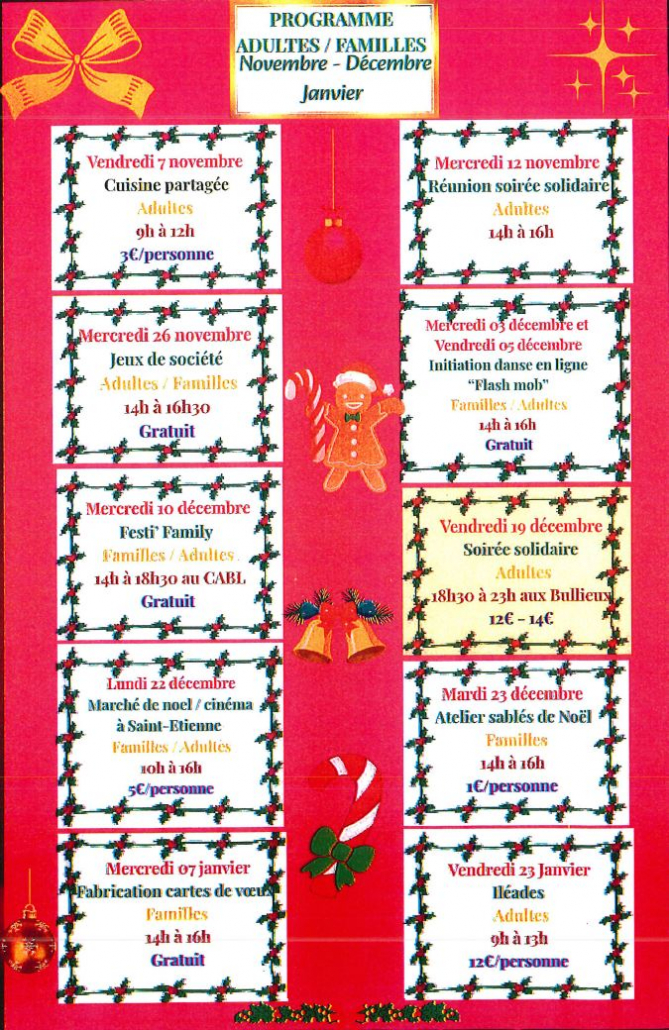 PROGRAMME
ADULTES / FAMILLES
Novembre - Décembre
Janvier
Vendredi 7 novembre
Cuisine partagée
Adultes
9h à 12h
3€/personne
Mercredi 12 novembre
Réunion soirée solidaire
Adultes
14h à 16h
Mercredi 26 novembre
Jeux de société
Adultes / Familles
14h à 16h30
Gratuit
Mercredi 03 décembre et
Vendredi 05 décembre
Initiation danse en ligne
“Flash mob”
Familles / Adultes
14h à 16h
Gratuit
Mercredi 10 décembre
Festi’ Family
Familles / Adultes
14h à 18h30 au CABL
Gratuit
Vendredi 19 décembre
Soirée solidaire
Adultes
18h30 à 23h aux Bullieux
12€ – 14€
Lundi 22 décembre
Marché de noel / cinéma
à Saint-Etienne
Familles / Adultes
10h à 16h
5€/personne
Mardi 23 décembre
Atelier sablés de Noël
Familles
14h à 16h
1€/personne
Mercredi 07 janvier
Fabrication cartes de vœux
Familles
14h à 16h
Gratuit
Vendredi 23 Janvier
Iléades
Adultes
9h à 13h
12€/personne